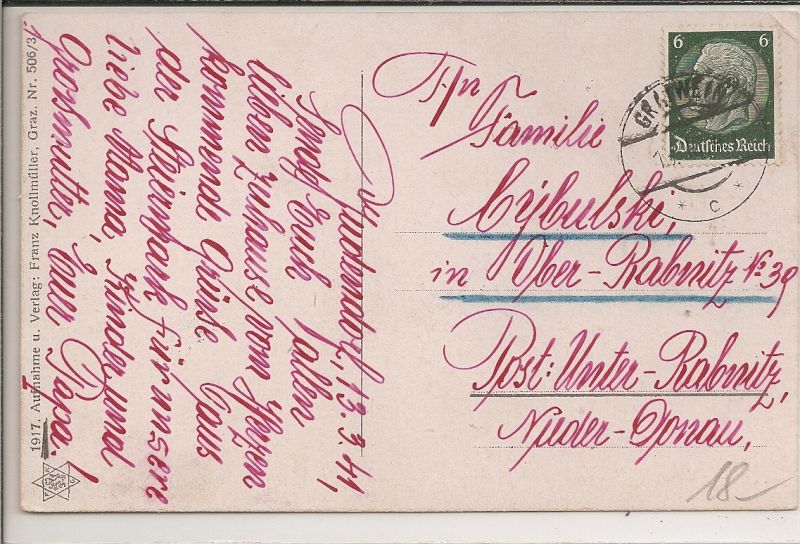 1917. Aufnahme u. Verlag: Franz Knollmüller, Graz. Nr. 506/3
13. 3. 41,
Euch Allen
lieben zuhause vom Herzen
kommende Grüsse Eaus
der Steirmark für unsere
liebe Mama, Kinder und
Grossmutter, Euer Papa!
6 6
Deutsches Reich
GRATWEIN
* C *
Familie
Cybulski,
in Ober-Rabnitz No 39
Post: Unter-Rabnitz,
Nieder-Donau,
18-